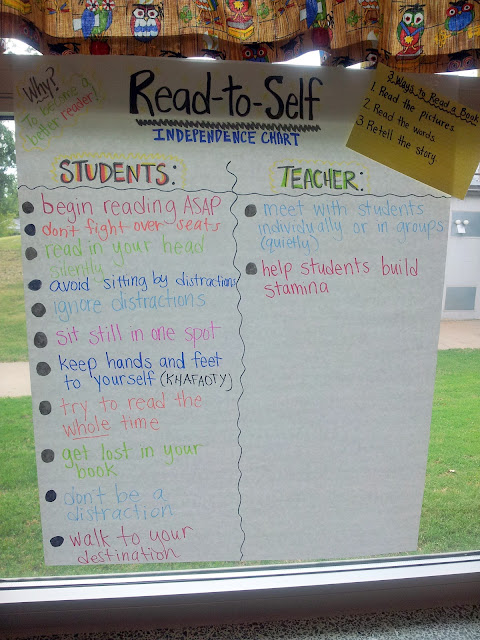 Why?
To become a
better reader!
Read-to-Self
INDEPENDENCE CHART
3 Ways to Read a Book
1. Read the pictures.
2. Read the words.
3 Retell the story.
STUDENTS:
begin reading ASAP
don't fight over seats
read in your head
silently
avoid sitting by distractions
ignore distractions
sit still in one spot
keep hands and feet
to yourself (KHAFAOTY)
try to read the
whole time
get lost in your
book
don't be a
distraction
walk to your
destination
TEACHER:
meet with students
individually or in groups
(quietly)
help students build
stamina